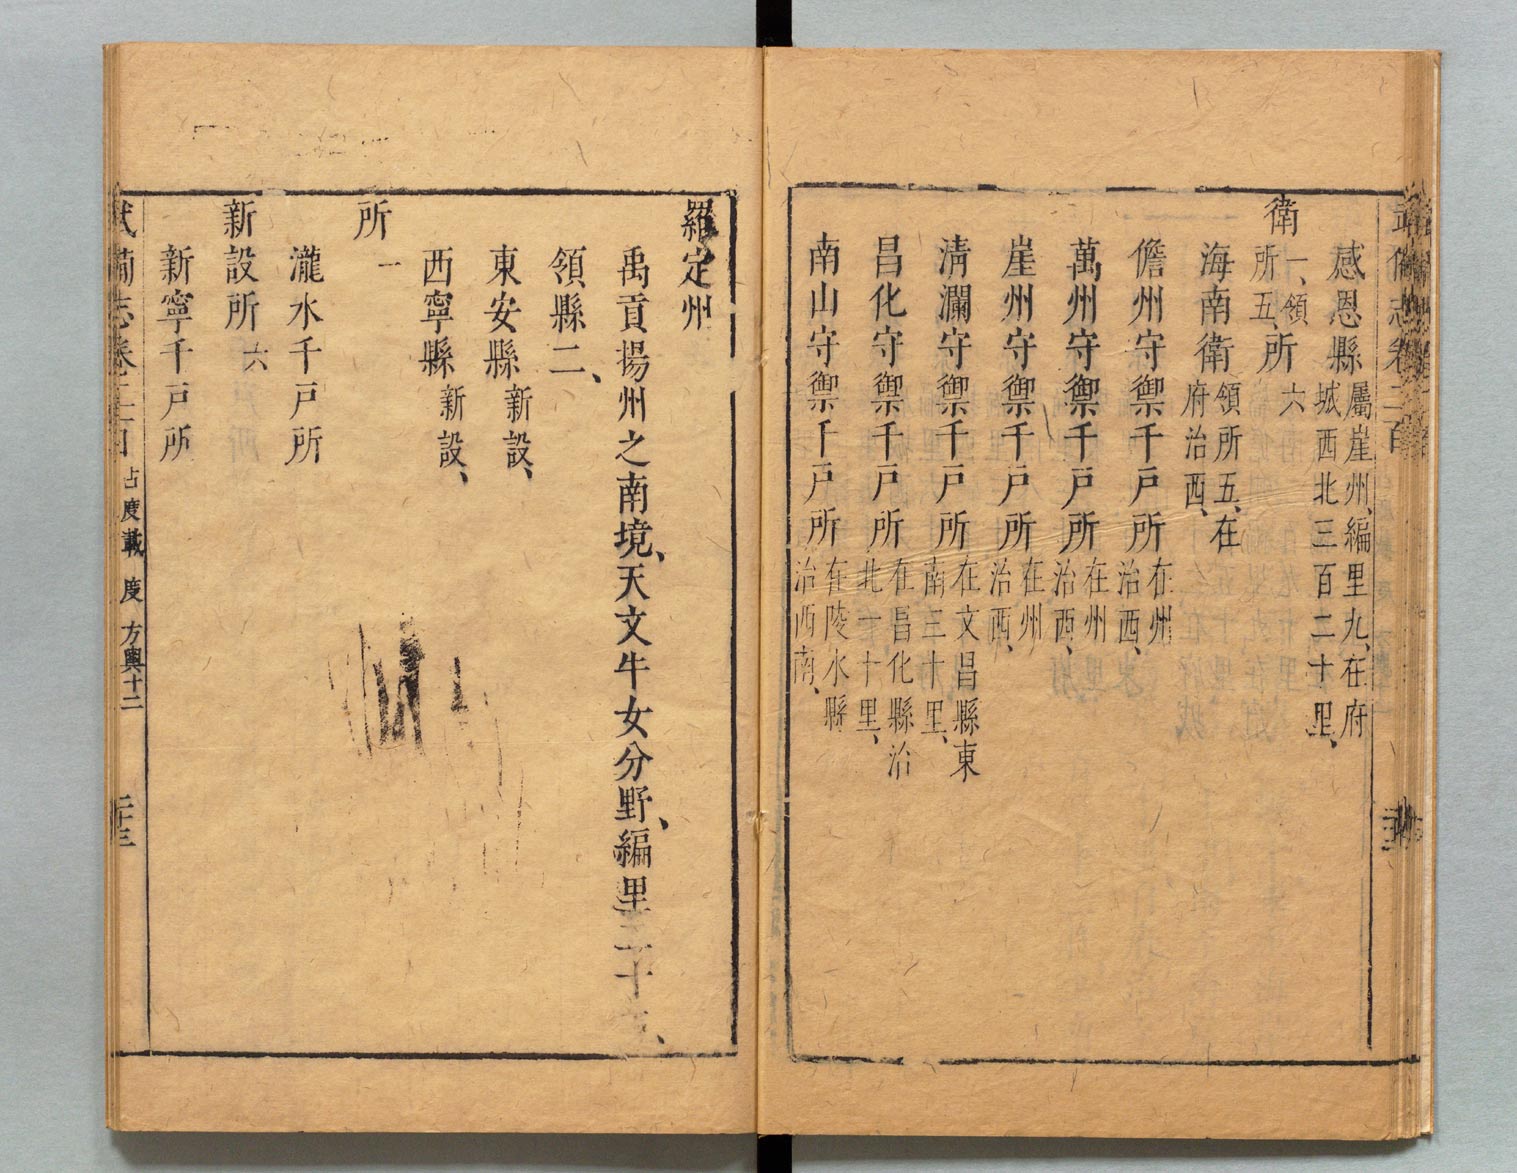 感恩縣屬崖州、編里九、在府城西北三百二十里、
衛一、領所五、所六
海南衛領所五、在府治西、
儋州守禦千戶所在州治西、
萬州守禦千戶所在州治西、
崖州守禦千戶所在州治西、
清瀾守禦千戶所在文昌縣東南三十里、
昌化守禦千戶所在昌化縣治北一十里、
南山守禦千戶所在陵水縣治西南、
羅定州
禹貢揚州之南境、天文牛女分野、編里二十
領縣二、
東安縣新設、
西寧縣新設、
所一
瀧水千戶所
新設所六
新寧千戶所
武備志卷二百 占度載 度 方輿十二 二十三